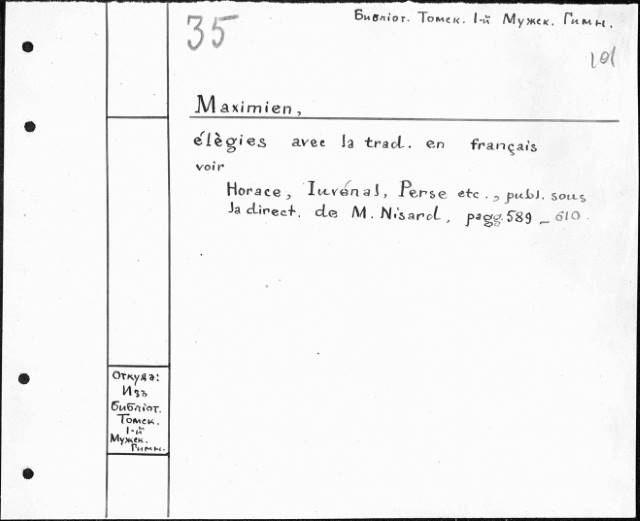 35
Библiот. Томск. 1-й Мужск. Гимн.
101
Maximien,
élègies avec la trad. en français
voir
Horace, Iuvénal, Perse etc., publ. sous
la direct. de M. Nisard, pagg. 589_610.
Откуда:
Изъ
библiот.
Томск.
1-й
Мужск.
Гимн.